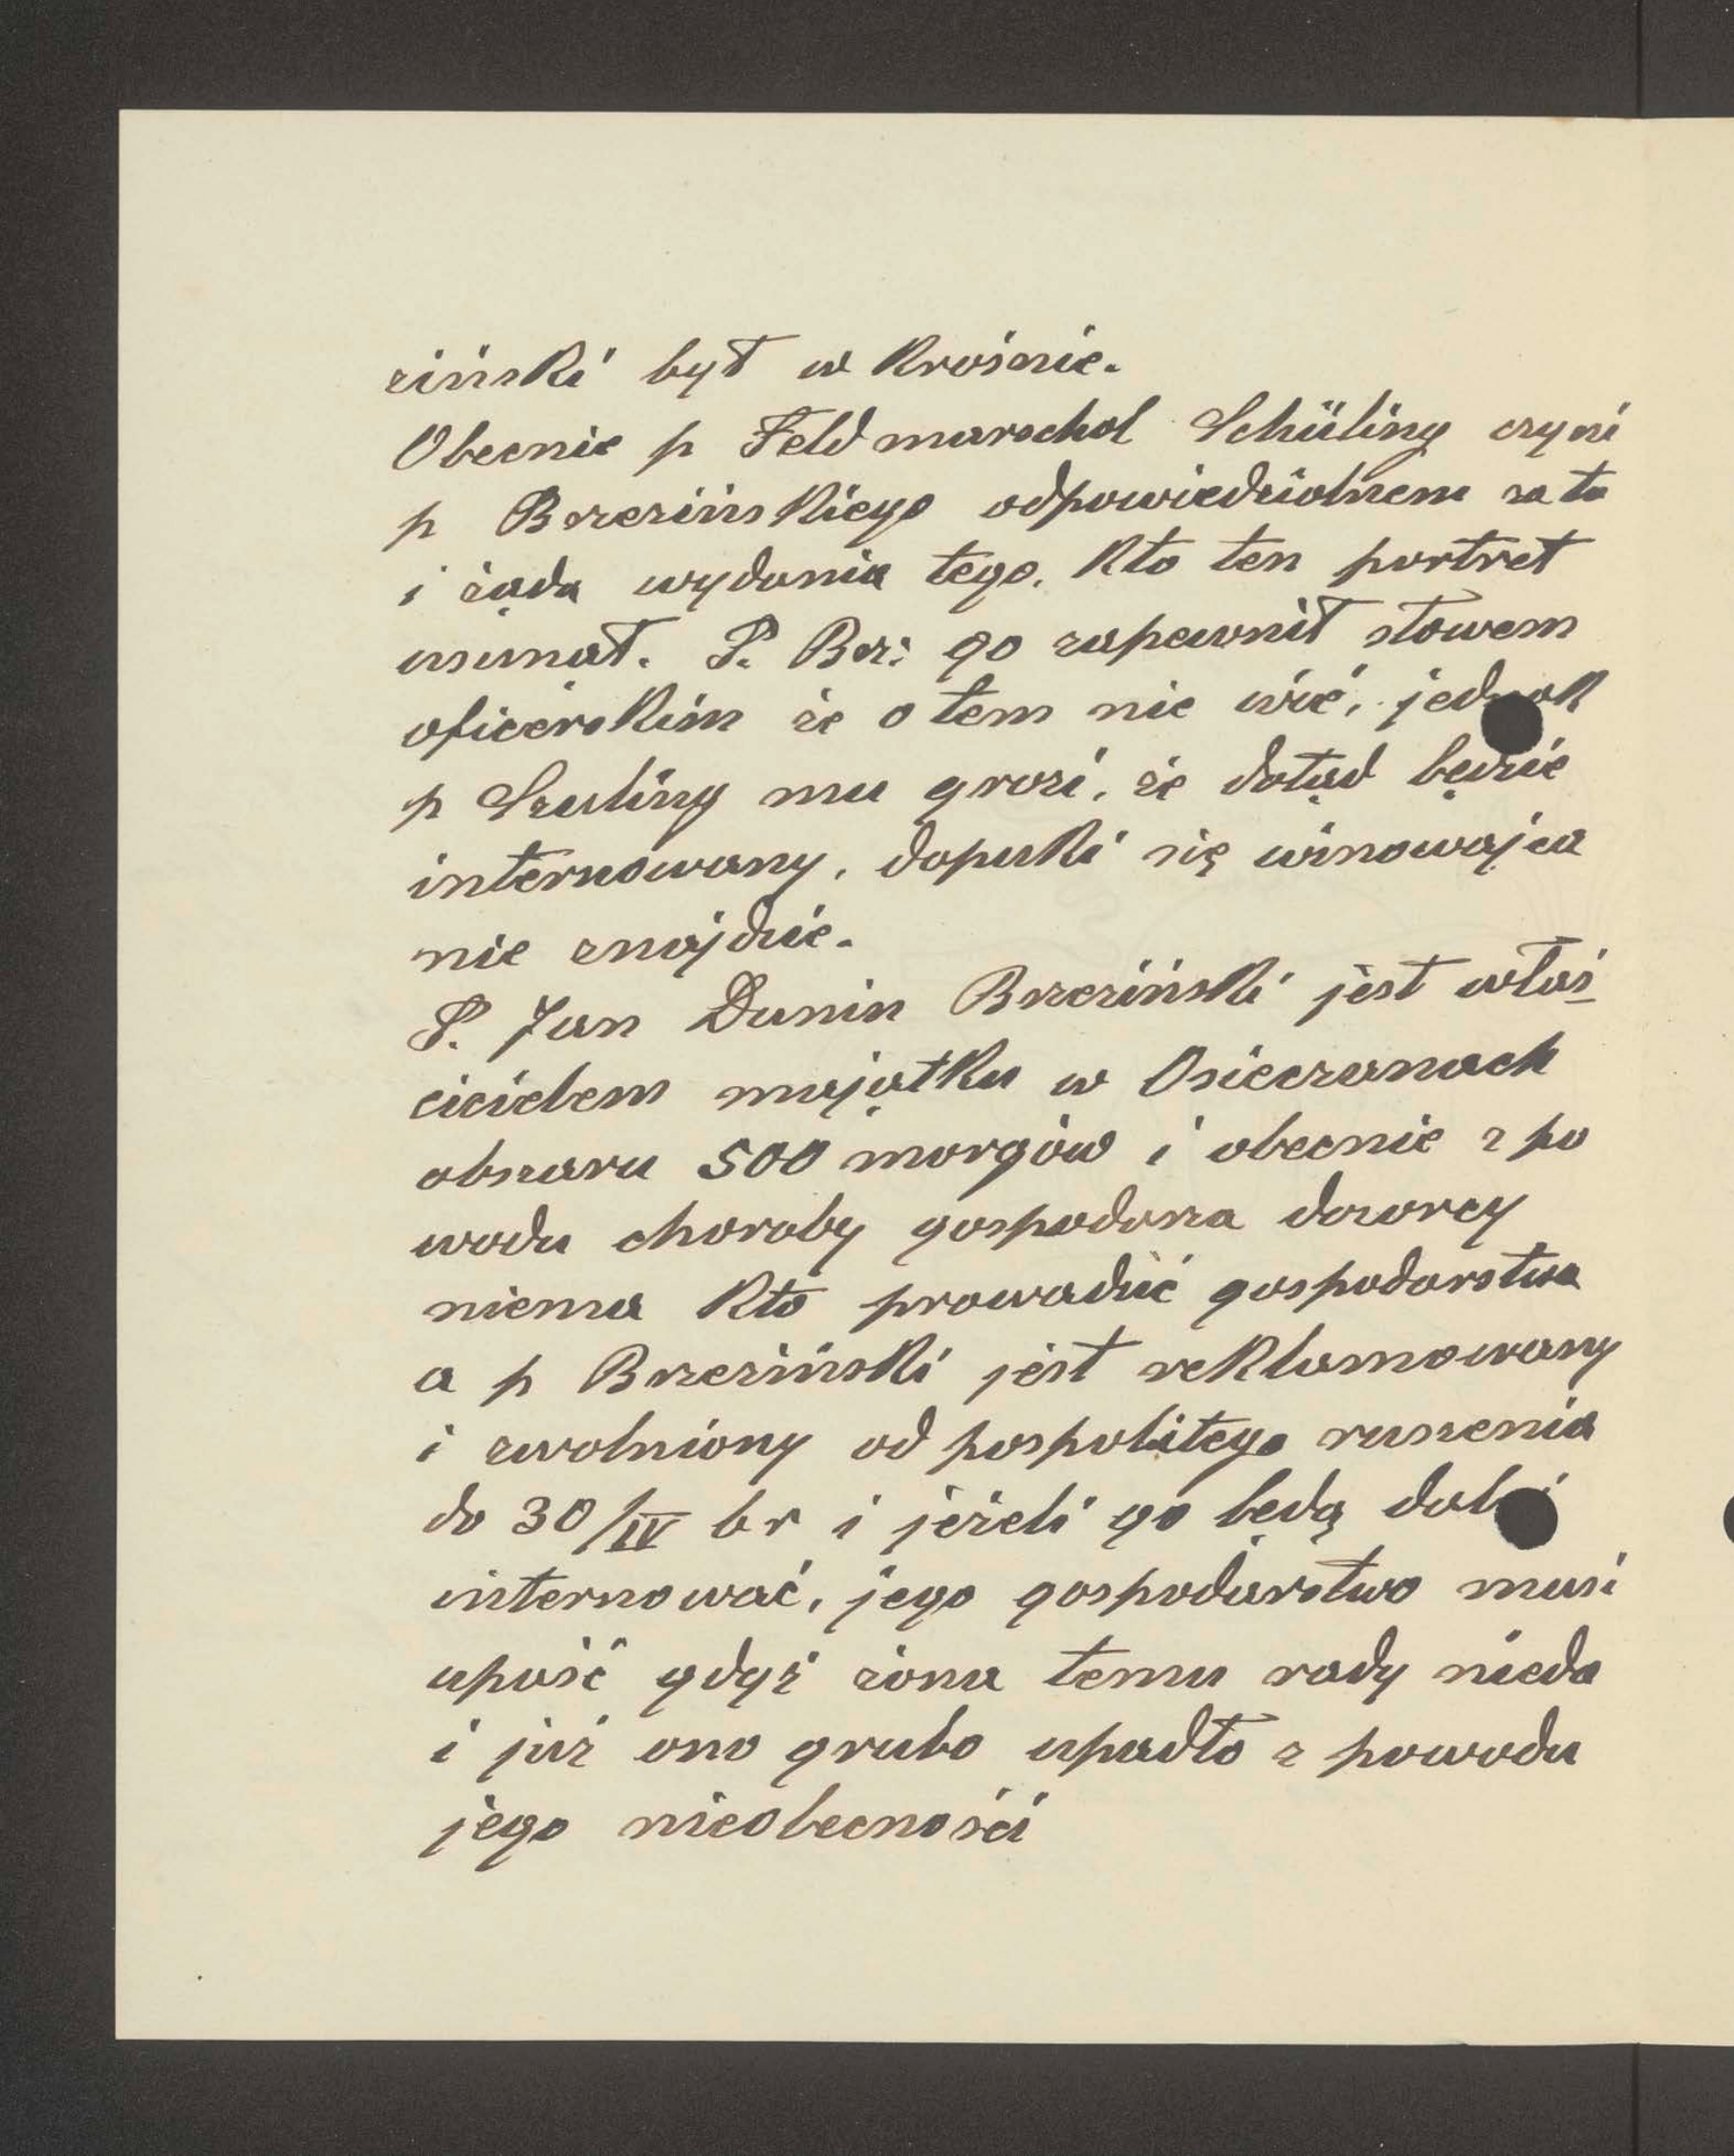 ziński był w Krośnie.
Obecnie p Feldmarschal Schüling czyni
p Brzezińskiego odpowiedzialnem za to
i żąda wydania tego, kto ten portret
usunął. P. Brz: go zapewnił słowem
oficerskim że o tem nie wié, jednak
p Szuling mu grozi, że dotąd będzie
internowany, dopuki się winowajca
nie znajdzie.
P. Jan Dunin Brzeziński jest właś
cicielem majątku w Osieczanach
obszaru 500 morgów i obecnie z po
wodu choroby gospodarza dozorcy
niema kto prowadzić gospodarstwa
a p Brzeziński jest reklamowany
i zwolniony od pospolitego ruszenia
do 30/IV br i jeżeli go będą dalej
internować, jego gospodarstwo musi
upaść gdyż żona temu rady nieda
i już ono grubo upadło z powodu
jego nieobecności